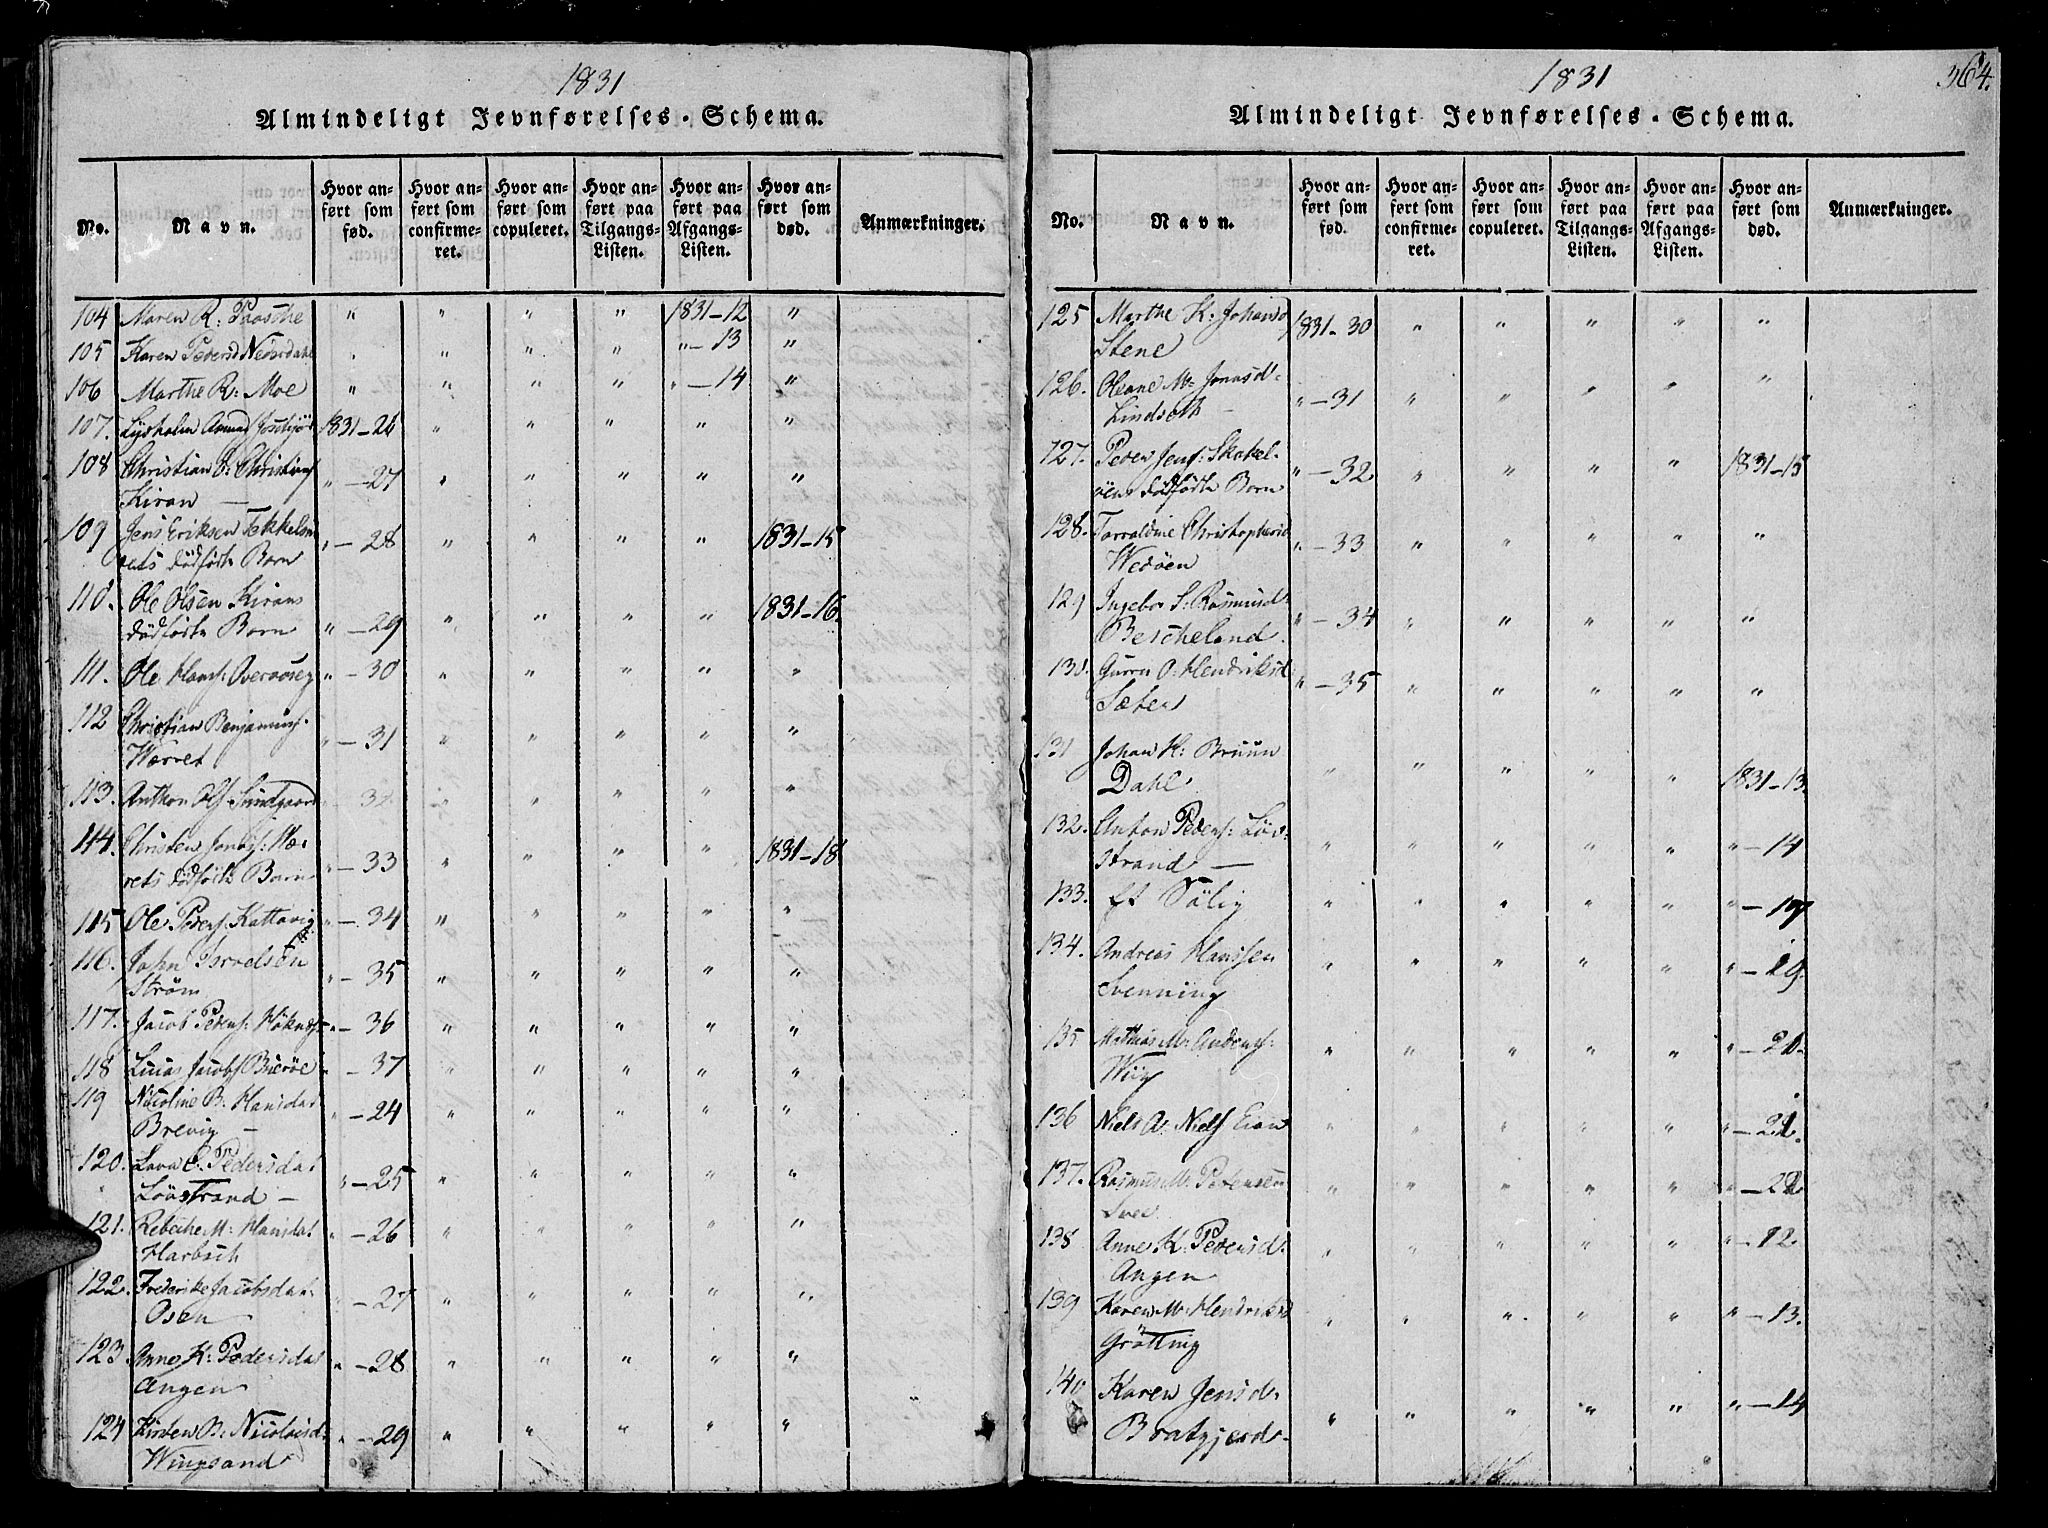 1831
Almindeligt Jevnførelses-Schema.
No. Navn. Hvor anført som fød. Hvor anført som confirmeret. Hvor anført som copuleret. Hvor anført paa Tilgangs-Listen. Hvor anført paa Afgangs-Listen. Hvor anført som død. Anmærkninger.
104 Maren R: Paasche " " " " 1831-12 "
105 Karen Pedersd " " " " "-13 "
106 Marthe R: Moe " " " " "-14 "
107. Lysholm 1831-26 " " " " "
108 Christian C: Christians
Kiran — "-27 " " " " "
109 Jens Eriksen
dödfödte Barn "-28 " " " " 1831-15
110. Ole Olsen Kirans
dödfödte Barn "-29 " " " " 1831-16.
111. Ole Hans: "-30 " " " " "
112 Christian Benjamins:
Warret "-31 " " " " "
113. Anthon Ols: Sundgaard "-32 " " " " "
114. Christen Jonas: Wa-
rets dödfödte Barn "-33 " " " " 1831-18
115 Ole Peders: Kattavig "-34 " " " " "
116. John Isralsen
Ström "-35 " " " " "
117. Jacob Peders: "-36 " " " " "
118 Lucas Jacobs: "-37 " " " " "
119 Nicoline B. Hansdat
Brevig — "-24 " " " " "
120. Lava C: Pedersdat
Lövstrand — "-25 " " " " "
121. Rebecke M: Hansdat
Harbach "-26 " " " " "
122. Frederike Jacobsdat.
Osen "-27 " " " " "
123. Anne K: Pedersdat
Angen "-28 " " " " "
124 Kirsten B. Nicolaisd:
Wingsand "-29 " " " " "
1831
364.
Almindeligt Jevnførelses-Schema.
No. Navn. Hvor anført som fød. Hvor anført som confirmeret. Hvor anført som copuleret. Hvor anført paa Tilgangs-Listen. Hvor anført paa Afgangs-Listen. Hvor anført som død. Anmærkninger.
125 Marthe K: Johansd
Stene 1831-30 " " " " "
126. Oleane M: Jonasd:
Lindseth — "-31 " " " " "
127. Peder Jens: Skakel-
öens dödfödte Barn "-32 " " " " 1831-15
128. Torvaldine Christophersd
Wedöen "-33 " " " " "
129 Ingebor S: Rasmusd:
Bescheland "-34 " " " " "
130. Gurru O: Hendriksd
Sæter "-35 " " " " "
131 Johan H: Bruun
Dahl " " " " " 1831-13.
132. Anton Peders: Löv-
strand — " " " " " "-14
133. Et " " " " " "-17
134. Andreas Hanssen
Svenning " " " " " "-19.
135 Mathias M: Anders:
Wiig " " " " " "-20.
136 Niels A: Niels: " " " " " "-21.
137. Rasmus M: Petersen
" " " " " "-22
138 Anne K: Pedersd:
Angen " " " " " "-12.
139 Karen M: Hendriksd
Grötting " " " " " "-13.
140 Karen Jensd:
Bratgjerd " " " " " "-14